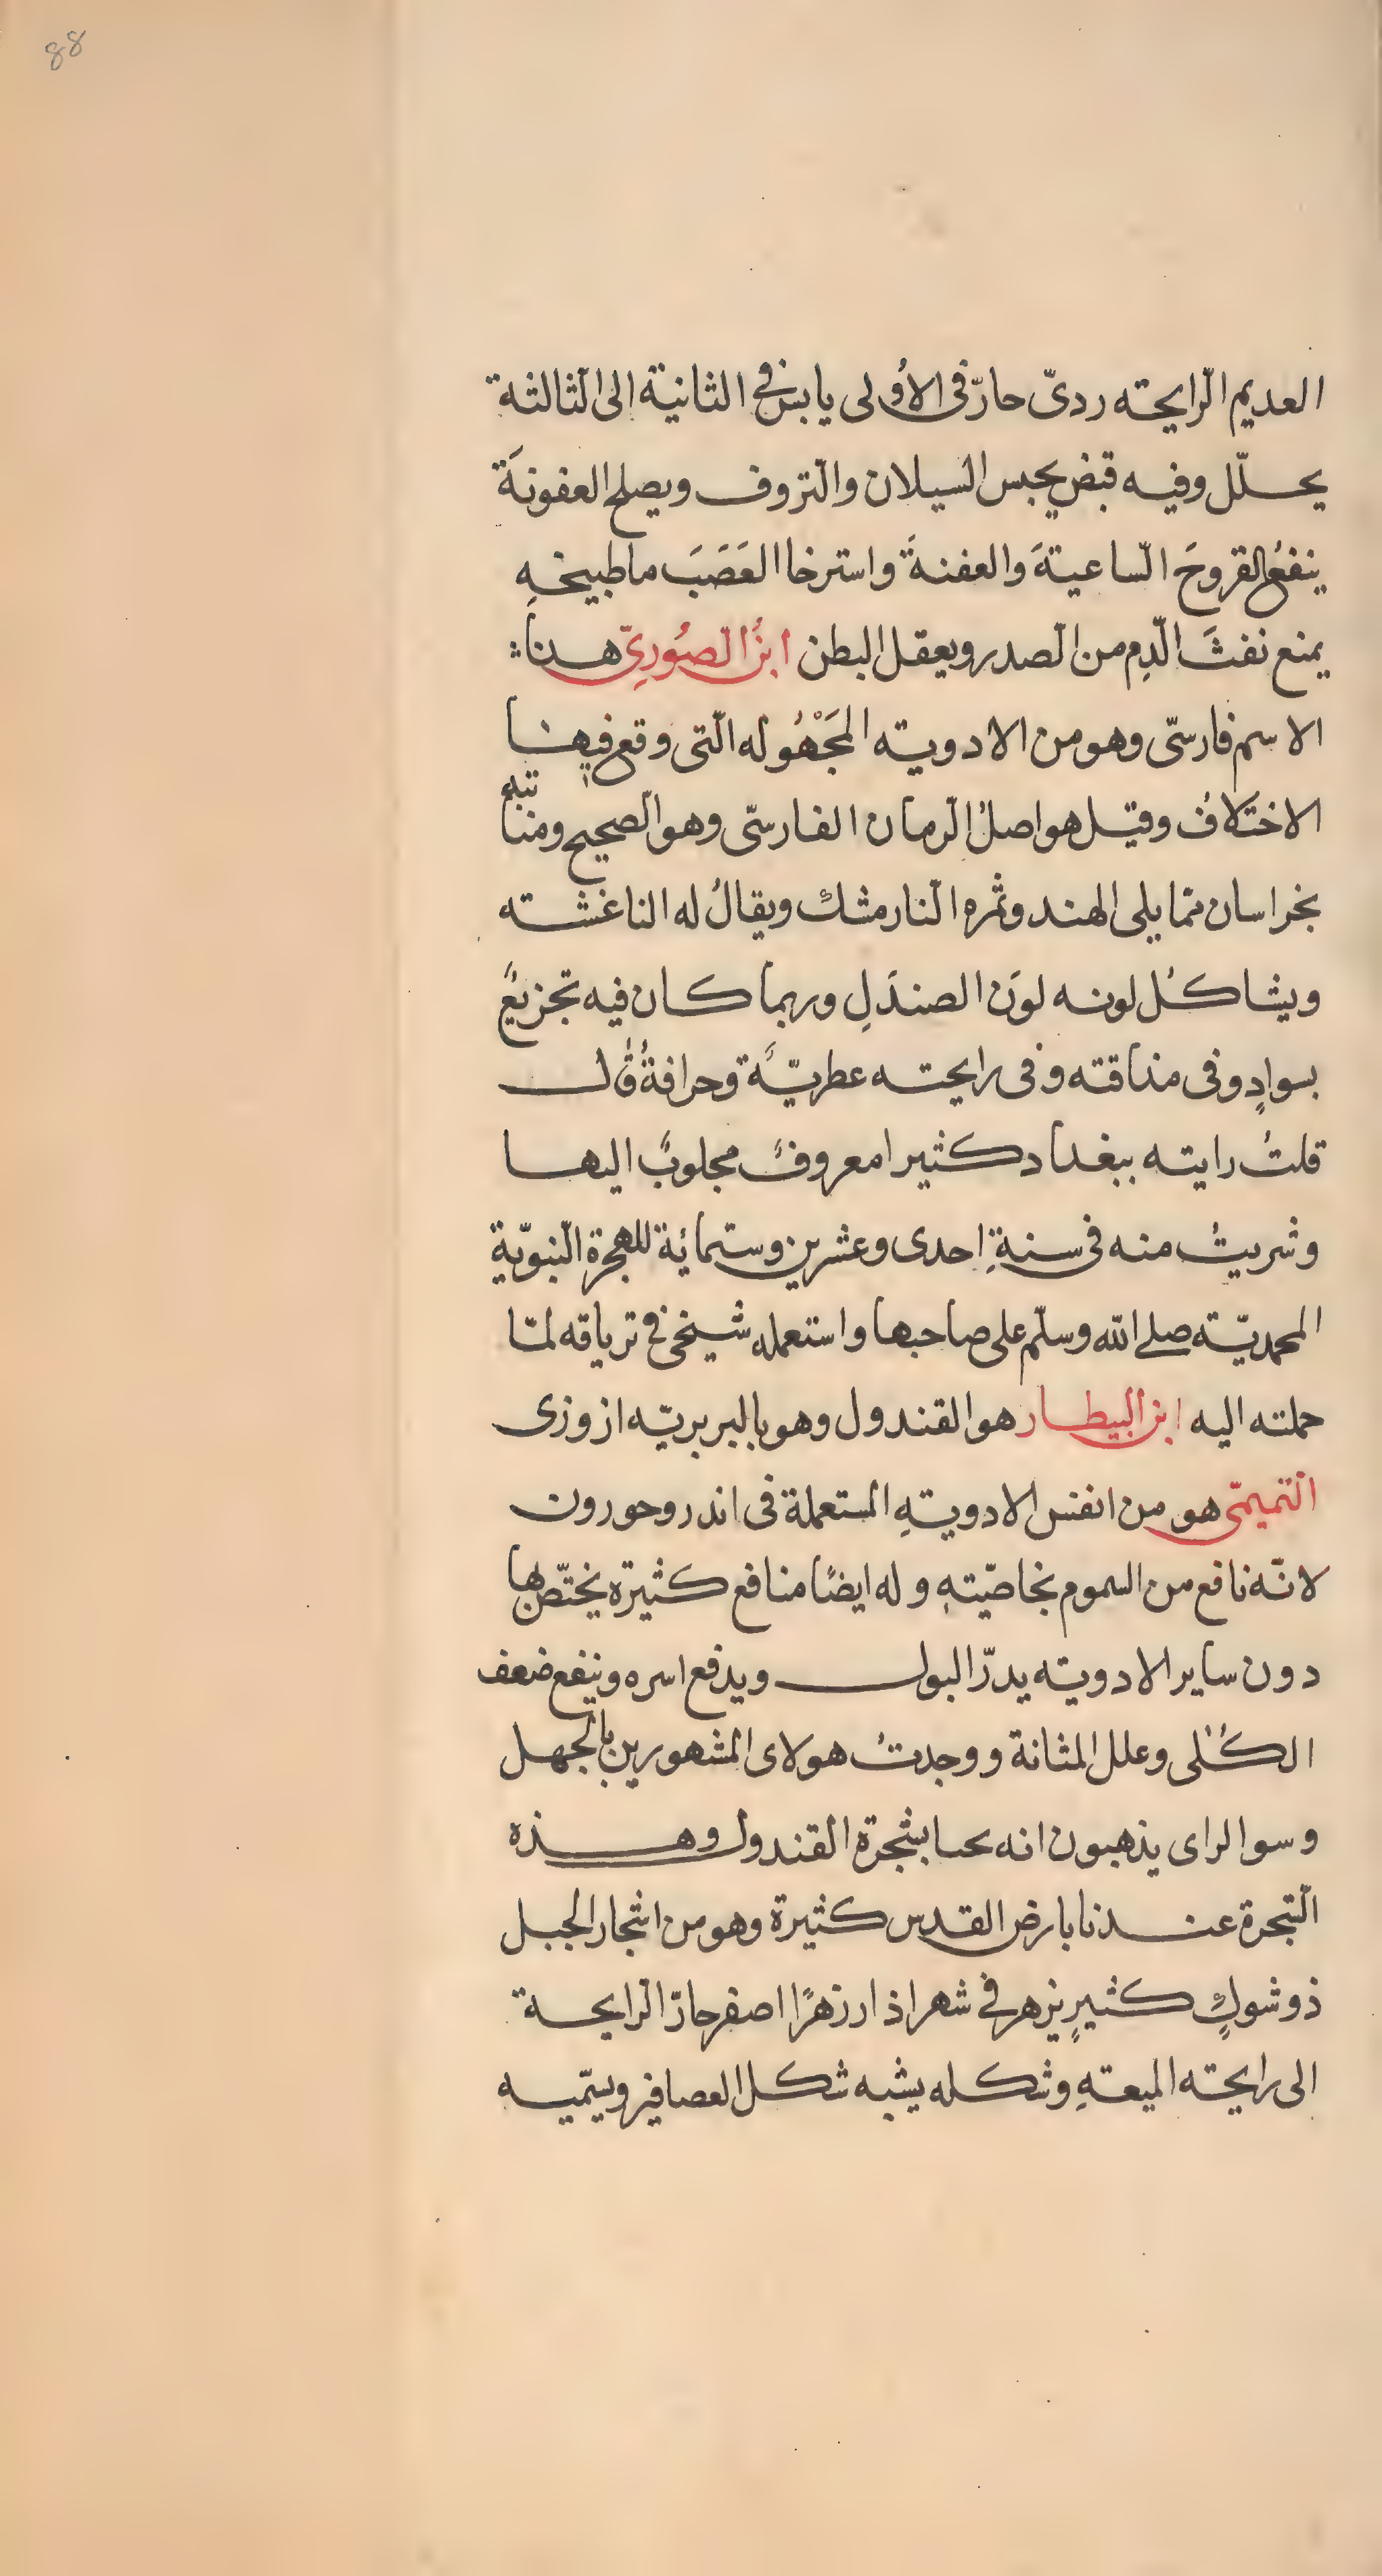 88
العديم الرّايحته ردىّ حارّ فى الاُولى يابس فى الثانية الى الثالثة
يحلّل وفيه قبض يحبس السيلان والتزوف ويصلح العفونةَ
ينفعُ القروحَ السّاعيةَ والعفنةَ واسترخا العَصَبَ ماطبيخهِ
يمنع نفثَ الدِم من الصدر ويعقل البطن ابنُ الصُورىّ هذا
الاسم فارسىّ وهو من الادويته المَجْهُوله الّتى وقع فيها
الاختلافُ وقيل هو اصلُ الرمان الفارسىّ وهو الصحيح ومنابته
بخراسان ممّا يلى الهند وثمره النار مشك ويقالُ له الناغشته
ويشاكُل لونه لوَن الصندَلِ وربما كان فيه تجزيعٌ
بسوادٍ وفى مذاقته وفى رايحته عطريّةٌ وحرافةٌ قال
قلتُ رايته ببغداد كثيرا معروفٌ مجلوبٌ اليها
وشريتُ منه فى سنةِ احدى وعشرين وستمائة للهجرة النبويّة
المحمديّته صلى الله وسلّم على صاحبها واستعمله شيخى فى ترياقه لمّا
حملته اليه ابن البيطار هو القندول وهو بالبربريّه ازوزى
التميمىّ هو من انفس الادويتهِ المستعملة فى اندروحورون
لانّه نافع من السموم بخاصّيتهِ وله ايضًا منافع كثيرة يختّص بها
دون ساير الادويته يدرّ البول ويدفع اسره وينفع ضعف
الكُلى وعلل المثانة ووجدتُ هولاى المشهورين بالجهل
وسو الراى يذهبون انه لحا بشجرة القندول وهذه
الشجرة عندنا بارض القدس كثيرة وهو من اشجار الجبل
ذو شوكٍ كثيرٍ يزهر فى شهر اذار زهرًا اصفر حادّ الرايحة
الى رايحته الميعتهِ وشكله يشبه شكل العصافير ويسمّيه